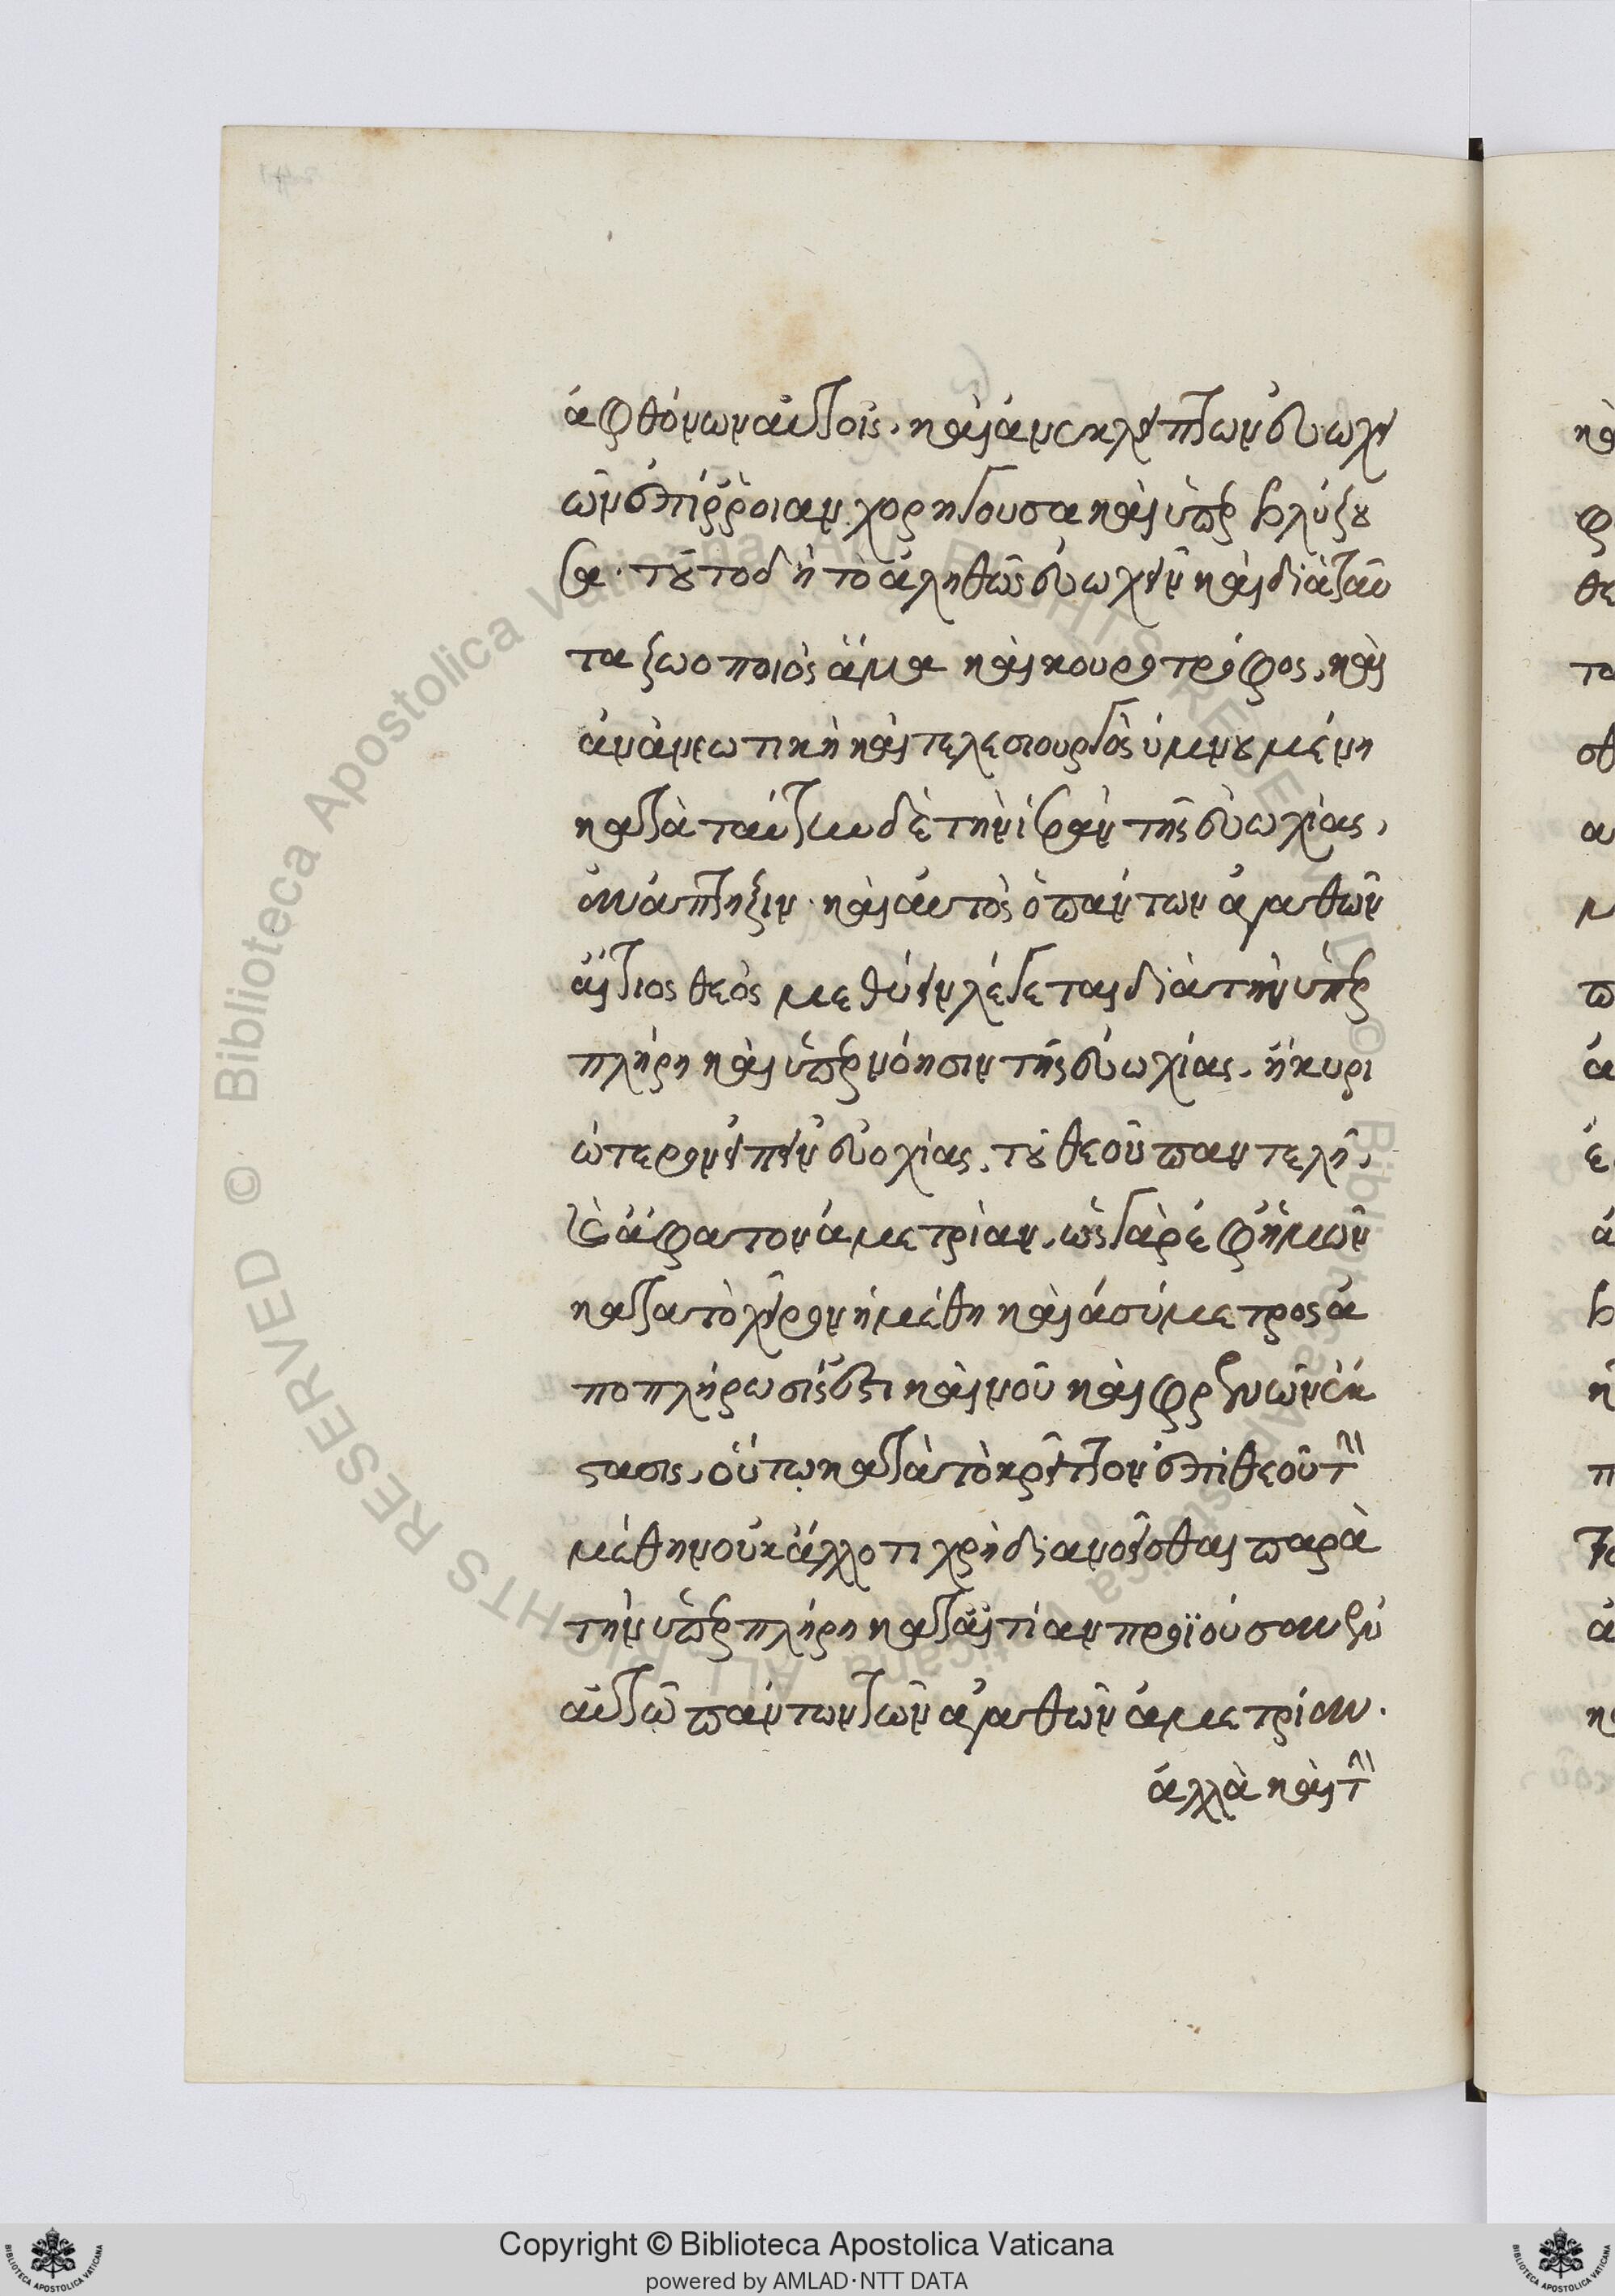 ἀφθόνων αὐτοῖς. καὶ ἀνεκλείπτων εὐωχι
ῶν ἐπίῤῥοιαν χορηγοῦσα καὶ ὑπερβλύζου
σα. τοῦτο δὴ τὸ ἀληθῶς εὐωχεῖν καὶ διὰ ταῦ
τα ζωοποιὸς ἅμα καὶ κουροτρόφος, καὶ
ἀνανεωτικὴ καὶ τελεσιουργὸς ὑμνουμένη
κατὰ ταύτην δὲ τὴν ἱερὰν τῆς εὐωχίας,
ἀνάπτηξιν. καὶ αὐτὸς ὁ πάντων ἀγαθῶν
αἴτιος θεὸς μεθύειν λέγεται διὰ τὴν ὑπερ
πλήρη καὶ ὑπὲρ νόησιν τῆς εὐωχίας. ἢ κυρι
ώτερον εἰπεῖν εὐοχίας. τοῦ θεοῦ παντελῆ,
καὶ ἄφατον ἀμετρίαν. ὡς γὰρ ἐφ' ἡμῶν
κατὰ τὸ χεῖρον ἡ μέθη καὶ ἀσύμετρος ἀ
ποπλήρωσίς ἐστι καὶ νοῦ καὶ φρενῶν ἔκ
στασις. οὕτω κατὰ τὸ κρεῖττον ἐπὶ θεοῦ τὴν
μέθην οὐκ ἄλλο τι χρὴ διανοεῖσθαι παρὰ
τὴν ὑπερπλήρη κατ' αἰτίαν προϊοῦσαν ἐν
αὐτῷ πάντων τῶν ἀγαθῶν ἀμετρίαν.
ἀλλὰ καὶ τὴν
Copyright © Biblioteca Apostolica Vaticana
powered by AMLAD·NTT DATA